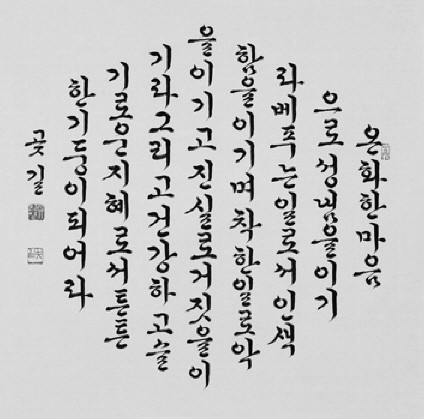 온화한마음
으로성냄을이기
라베푸는일로써인색
함을이기며착한일로악
을이기고진실로거짓을이
기라그리고건강하고슬
기로운지혜로써튼튼
한기둥이되어라